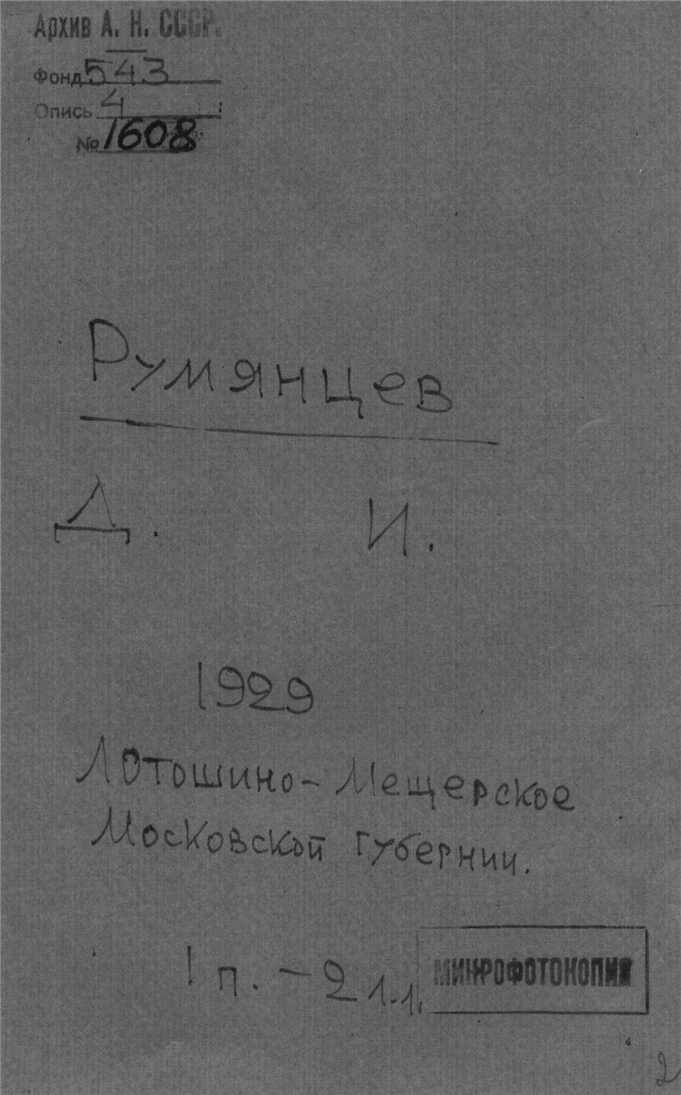 Архив А. Н. СССР.
Фонд 543
Опись 4
№ 1608
Румянцев
Д. И.
1929
Лотошино-Мещерское
Московской губернии.
1 п. - 2 л.л.
МИКРОФОТОКОПИЯ
2